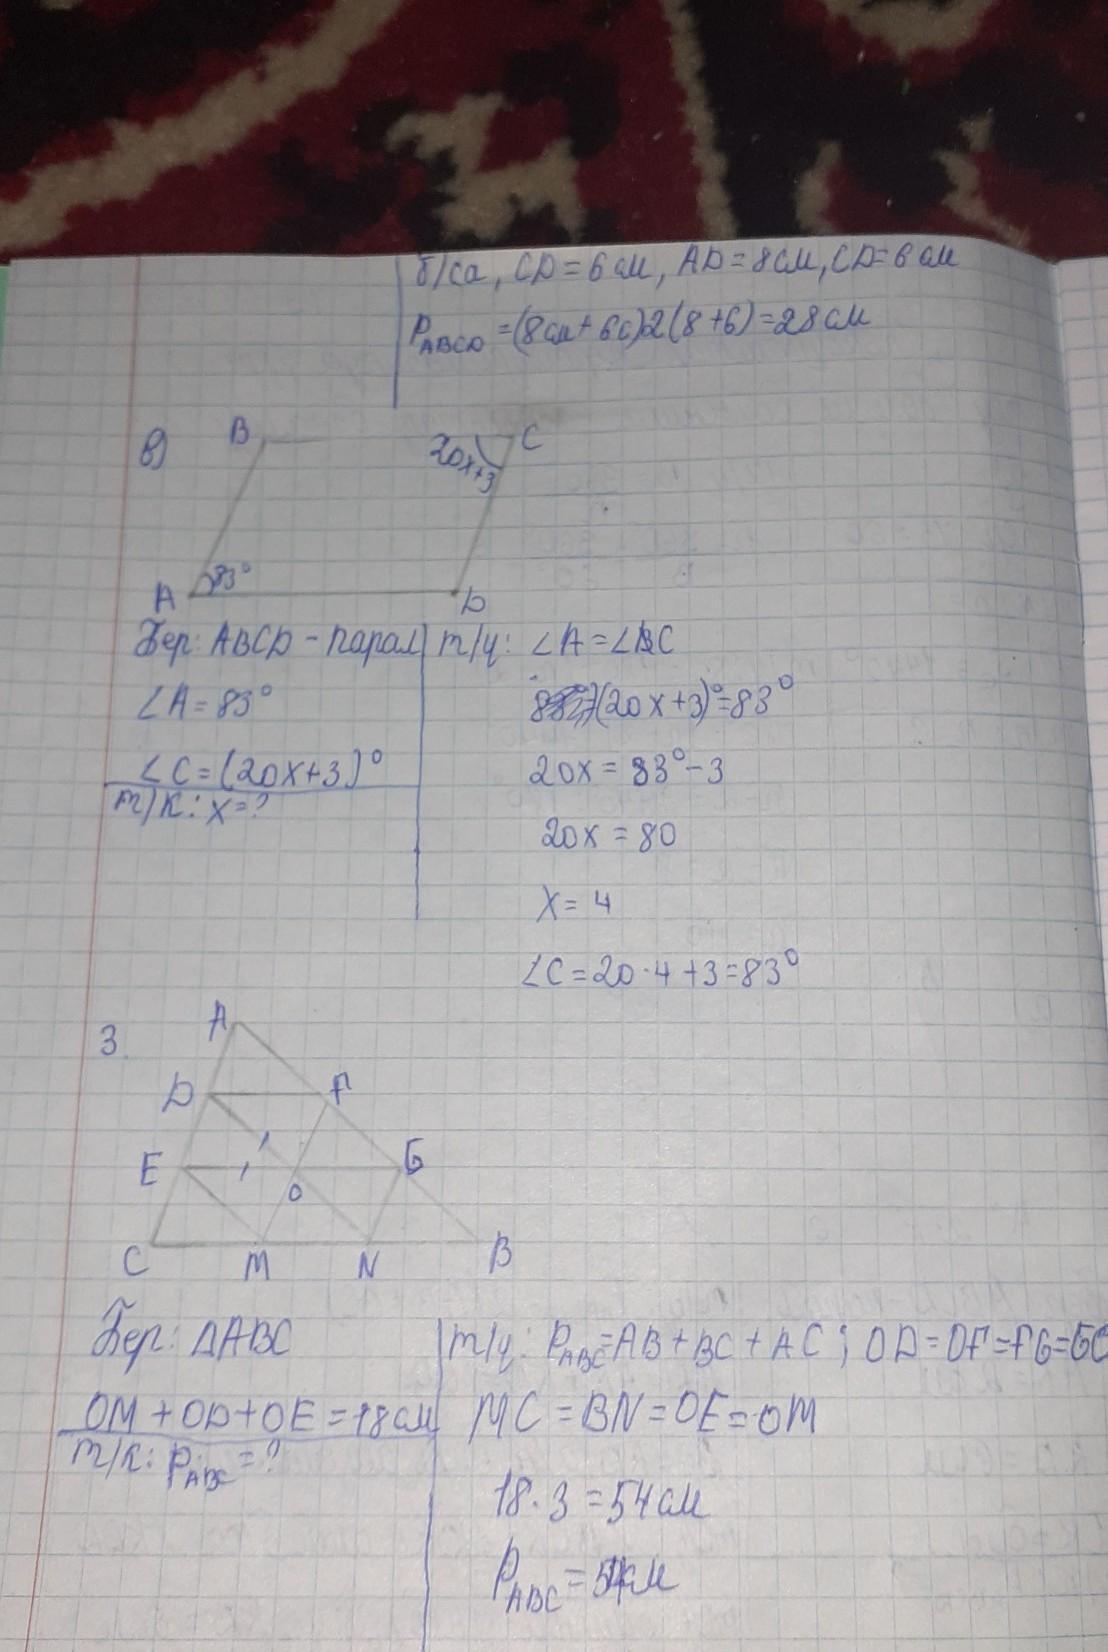 б/са, CD = 6 см, AD = 8 см, CD = 6 см
P ABCD = (8см + 6с)2(8+6) = 28 см
в)
B
20x+3
C
A
83°
D
Бер: ABCD - парал
∠A = 83°
∠C = (20x+3)°
т/к: x = ?
т/ү: ∠A = ∠C
(20x+3)° = 83°
20x = 83° - 3
20x = 80
x = 4
∠C = 20·4+3 = 83°
3.
A
D
F
E
G
O
C
M
N
B
Бер: ΔABC
OM + OD + OE = 18 см
т/к: P ABC = ?
т/ү: P ABC = AB + BC + AC ; OD = OF = FG = GO
MC = BN = OE = OM
18·3 = 54 см
P ABC = 54 см